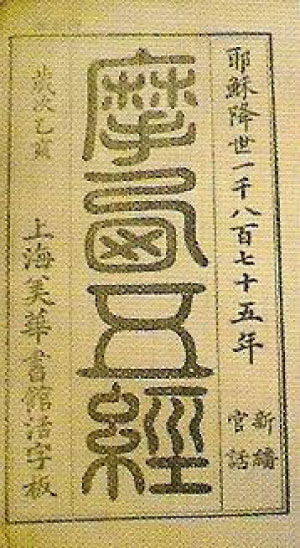 耶穌降世一千八百七十五年
新繙
官話
摩西五經
歲次乙亥
上海美華書館活字板